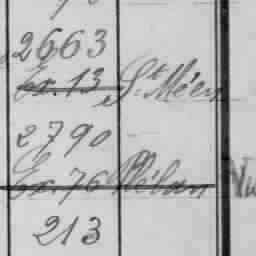 2663
Ex. 13 St Méen
2790
Ex. 76 Plélan
213